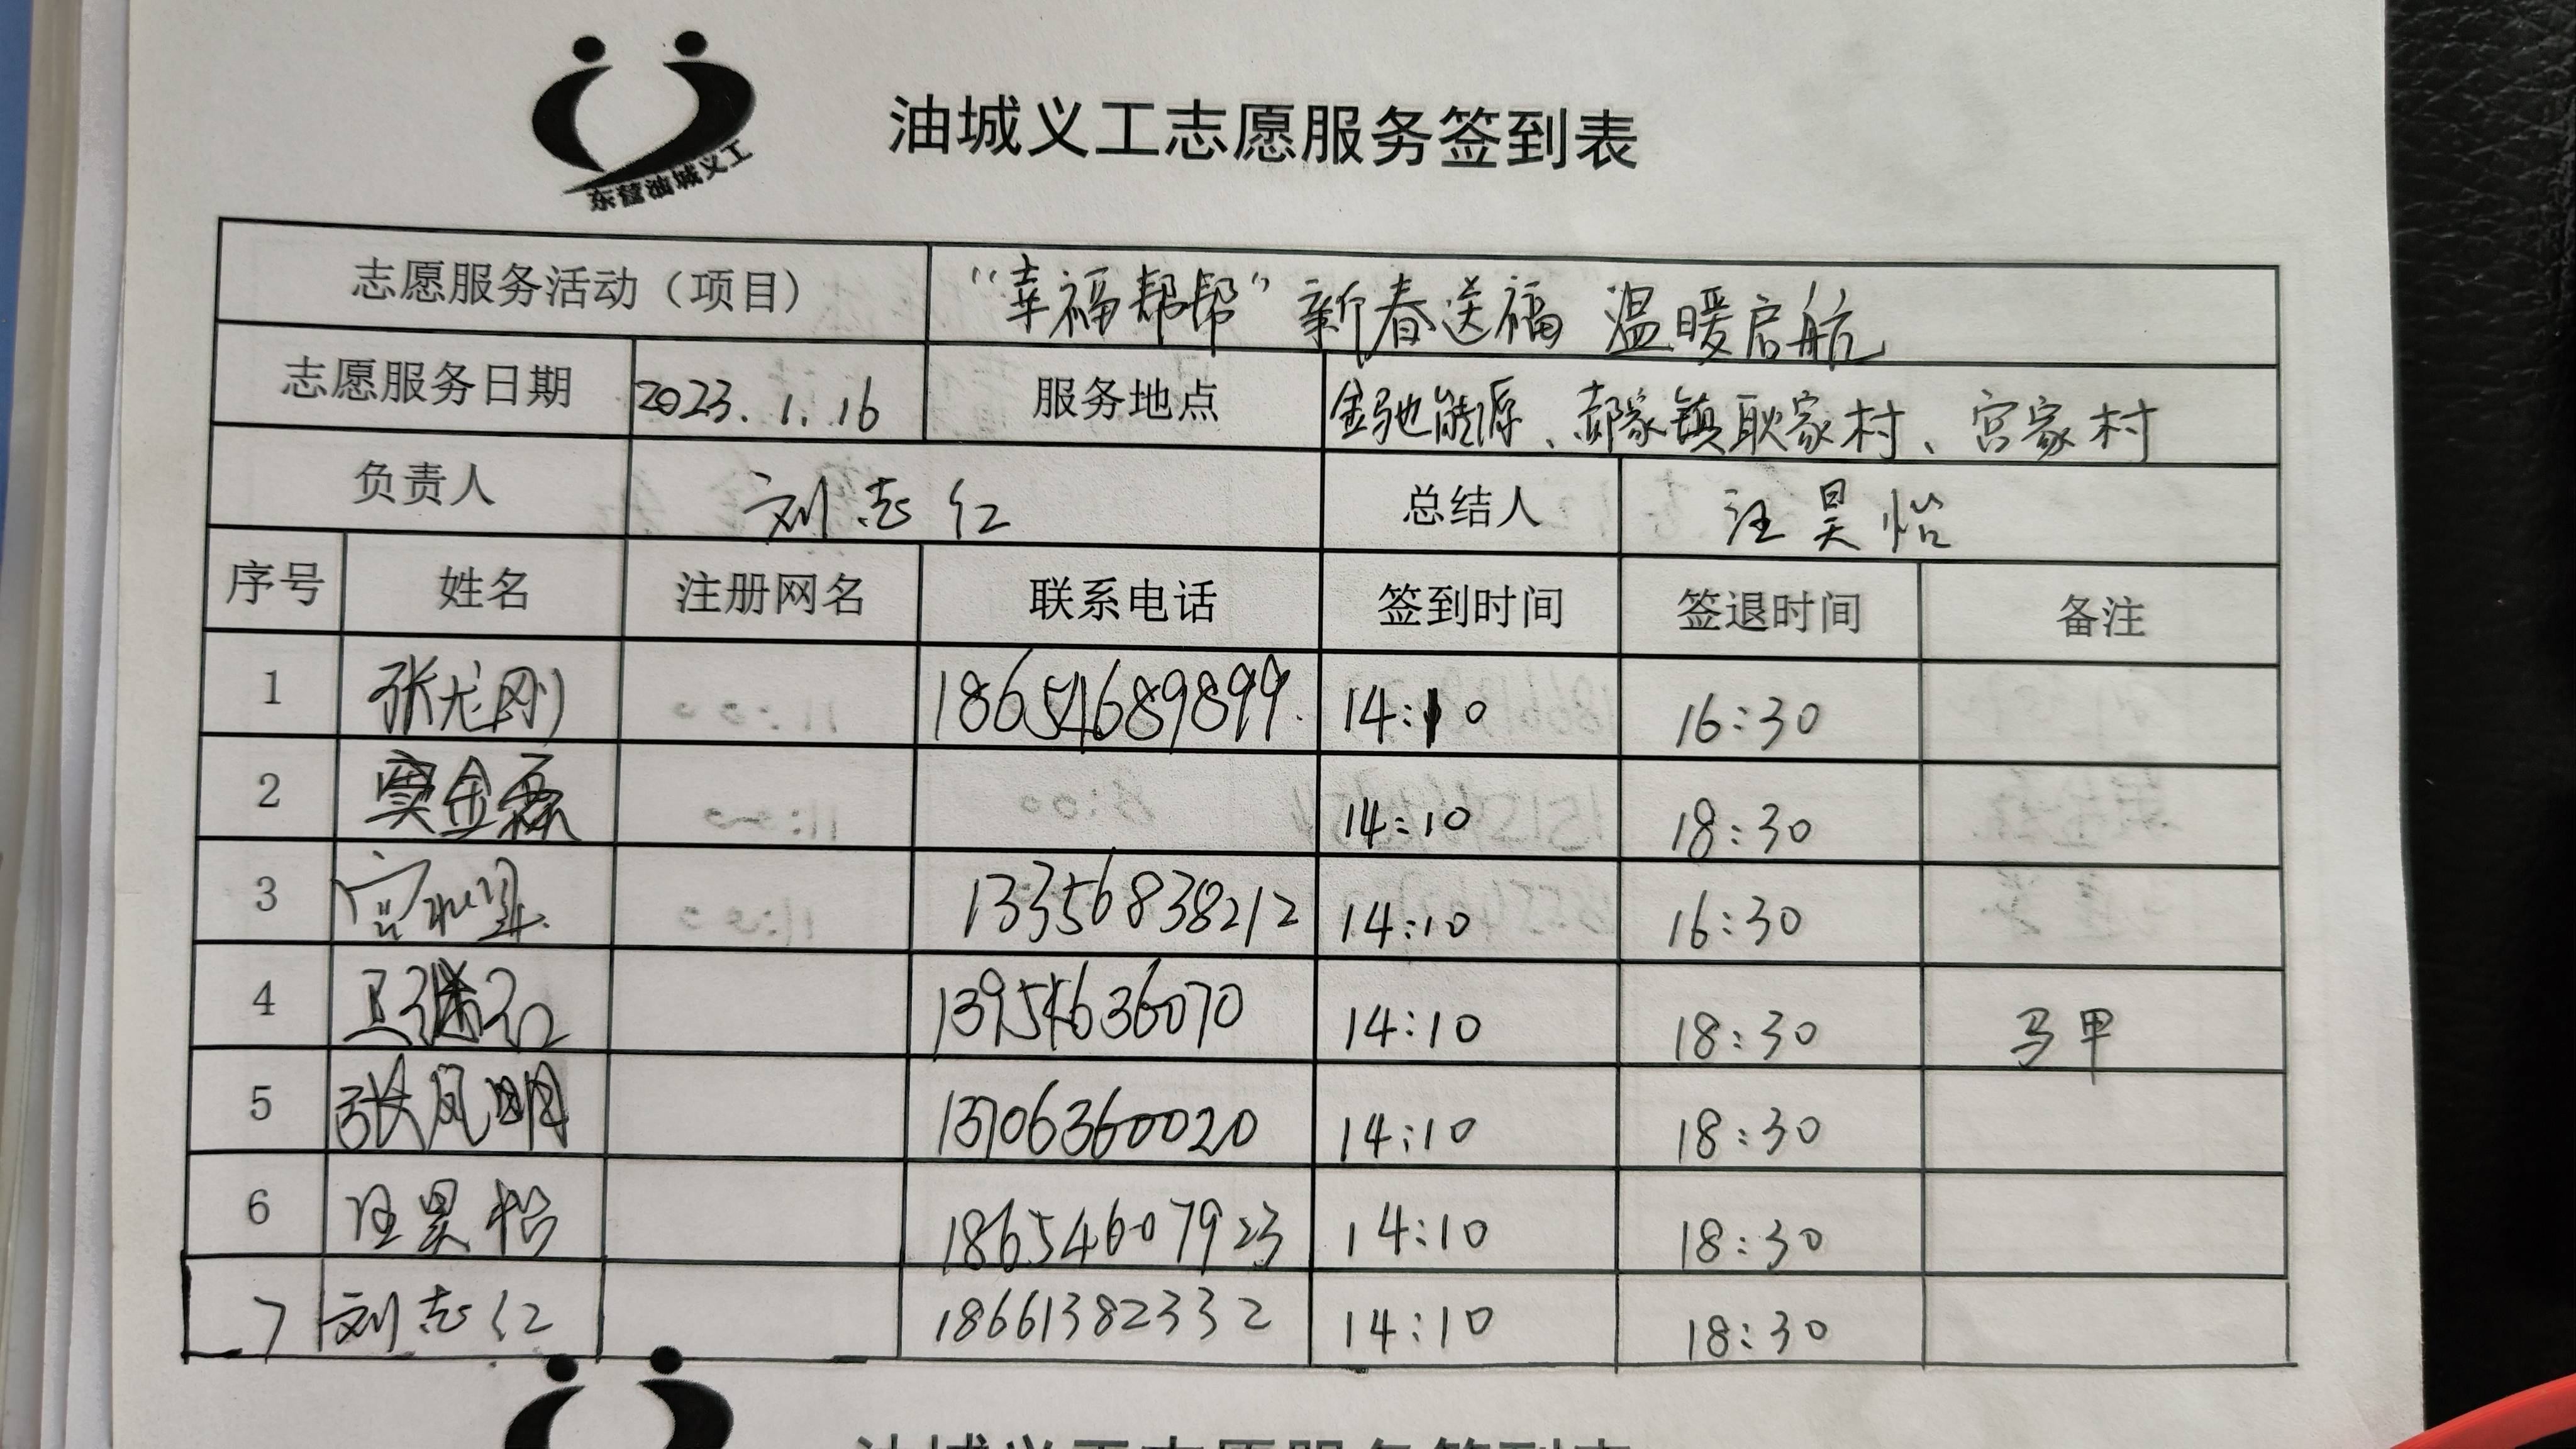 东营油城义工
油城义工志愿服务签到表
志愿服务活动（项目） “幸福帮帮”新春送福 温暖启航
志愿服务日期 2023.1.16 服务地点 金驰能源、郝家镇耿家村、宫家村
负责人 刘志仁 总结人 汪昊怡
序号 姓名 注册网名 联系电话 签到时间 签退时间 备注
1 张龙刚 18654689899 14:10 16:30
2 窦金磊 14:10 18:30
3 13356838212 14:10 16:30
4 13954636070 14:10 18:30 马甲
5 张凤明 13706360020 14:10 18:30
6 汪昊怡 18654607923 14:10 18:30
7 刘志仁 18661382332 14:10 18:30
油城义工志愿服务签到表